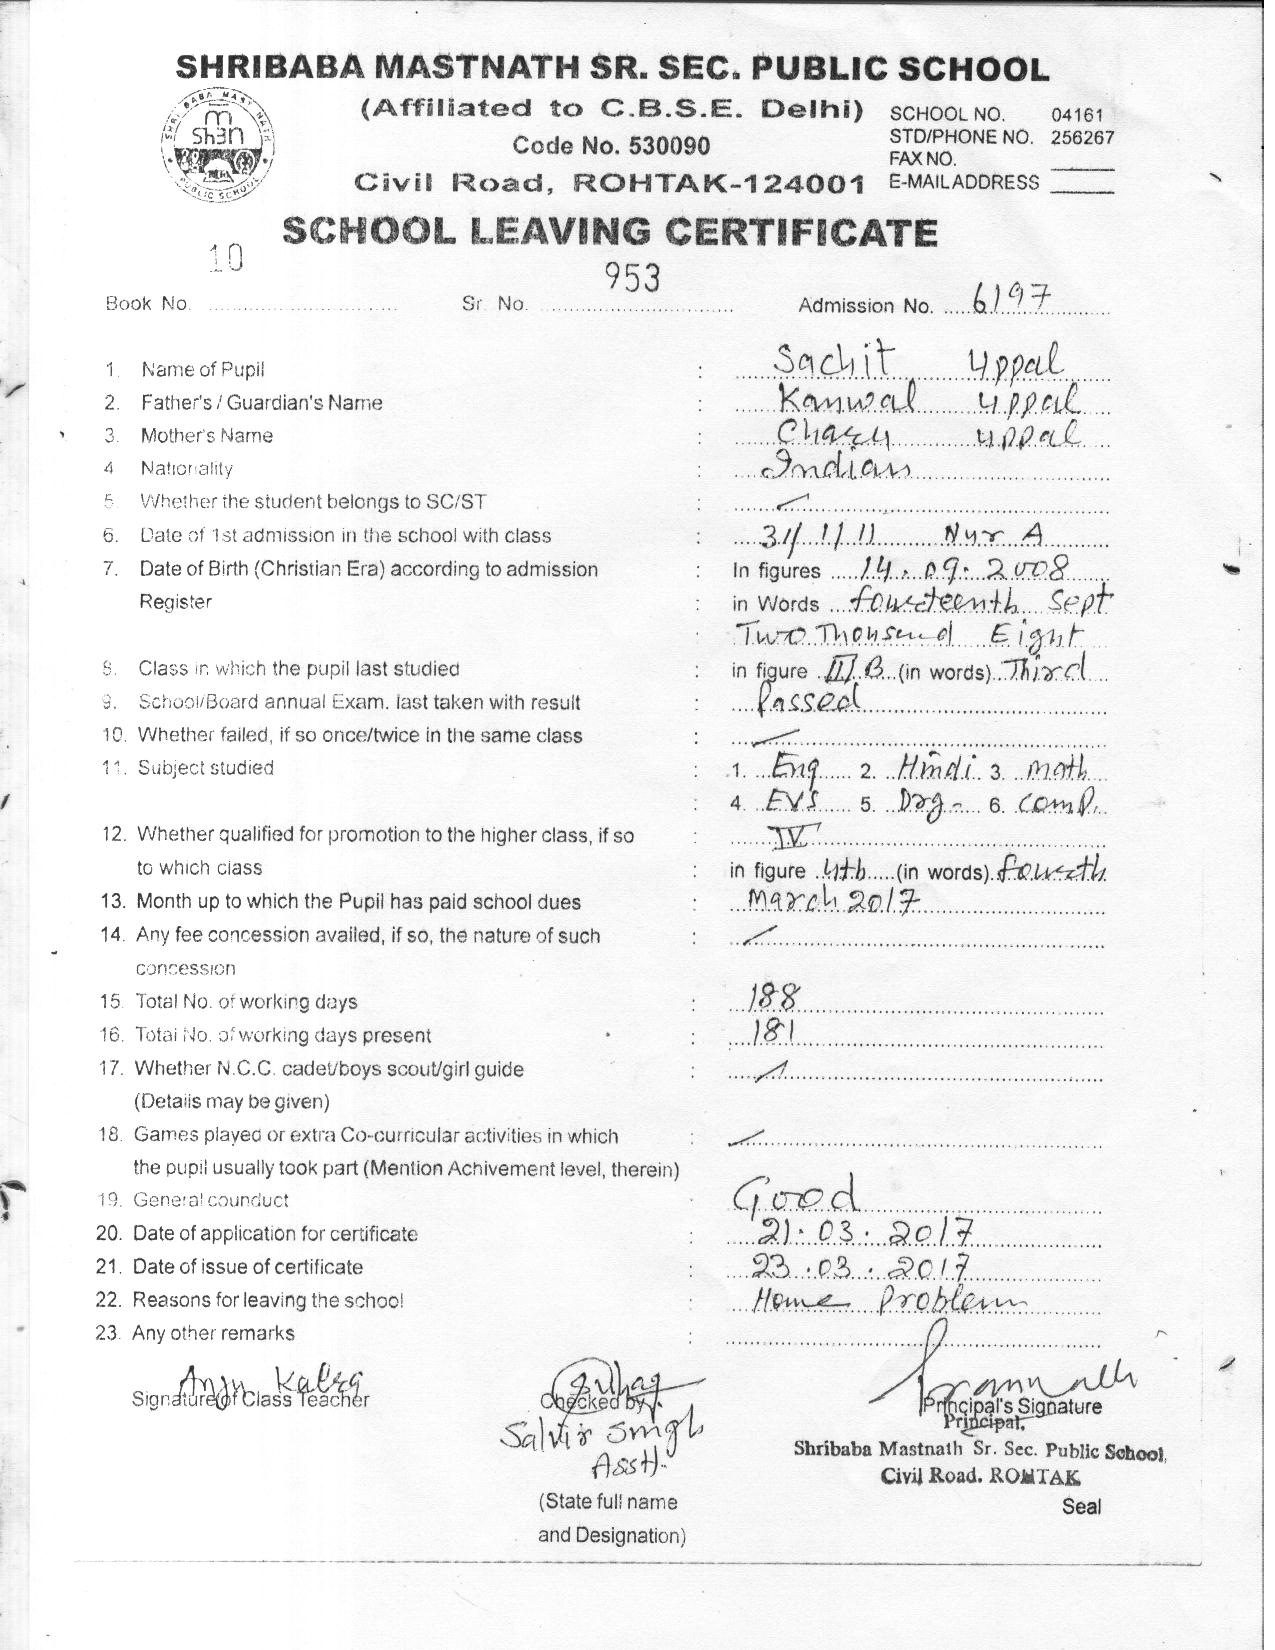 SHRIBABA MASTNATH SR. SEC. PUBLIC SCHOOL
(Affiliated to C.B.S.E. Delhi)
Code No. 530090
Civil Road, ROHTAK-124001
SCHOOL NO. 04161
STD/PHONE NO. 256267
FAX NO.
E-MAIL ADDRESS
SHRI BABA MAST NATH PUBLIC SCHOOL
SCHOOL LEAVING CERTIFICATE
Book No. 10 Sr. No. 953 Admission No. 6197
1. Name of Pupil : Sachit Uppal
2. Father's / Guardian's Name : Kanwal Uppal
3. Mother's Name : Charu Uppal
4 Nationality : Indian
5. Whether the student belongs to SC/ST :
6. Date of 1st admission in the school with class : 31/1/11 Nur A
7. Date of Birth (Christian Era) according to admission : In figures 14.09.2008
Register : in Words fourteenth Sept
: Two Thousand Eight
8. Class in which the pupil last studied : in figure III B (in words) Third
9. School/Board annual Exam. last taken with result : Passed
10. Whether failed, if so once/twice in the same class :
11. Subject studied : 1. Eng 2. Hindi 3. Math
: 4. EVS 5. Drg- 6. Comp.
12. Whether qualified for promotion to the higher class, if so : IV
to which class : in figure 4th (in words) fourth
13. Month up to which the Pupil has paid school dues : March 2017
14. Any fee concession availed, if so, the nature of such :
concession
15. Total No. of working days : 188
16. Total No. of working days present : 181
17. Whether N.C.C. cadet/boys scout/girl guide :
(Details may be given)
18. Games played or extra Co-curricular activities in which :
the pupil usually took part (Mention Achivement level, therein)
19. General counduct Good
20. Date of application for certificate : 21.03.2017
21. Date of issue of certificate : 23.03.2017
22. Reasons for leaving the school : Home Problem
23. Any other remarks :
Anju Kalra
Signature of Class Teacher
Checked by
Salvir Singh
Asstt.
(State full name
and Designation)
Principal's Signature
Principal,
Shribaba Mastnath Sr. Sec. Public School,
Civil Road. ROHTAK
Seal